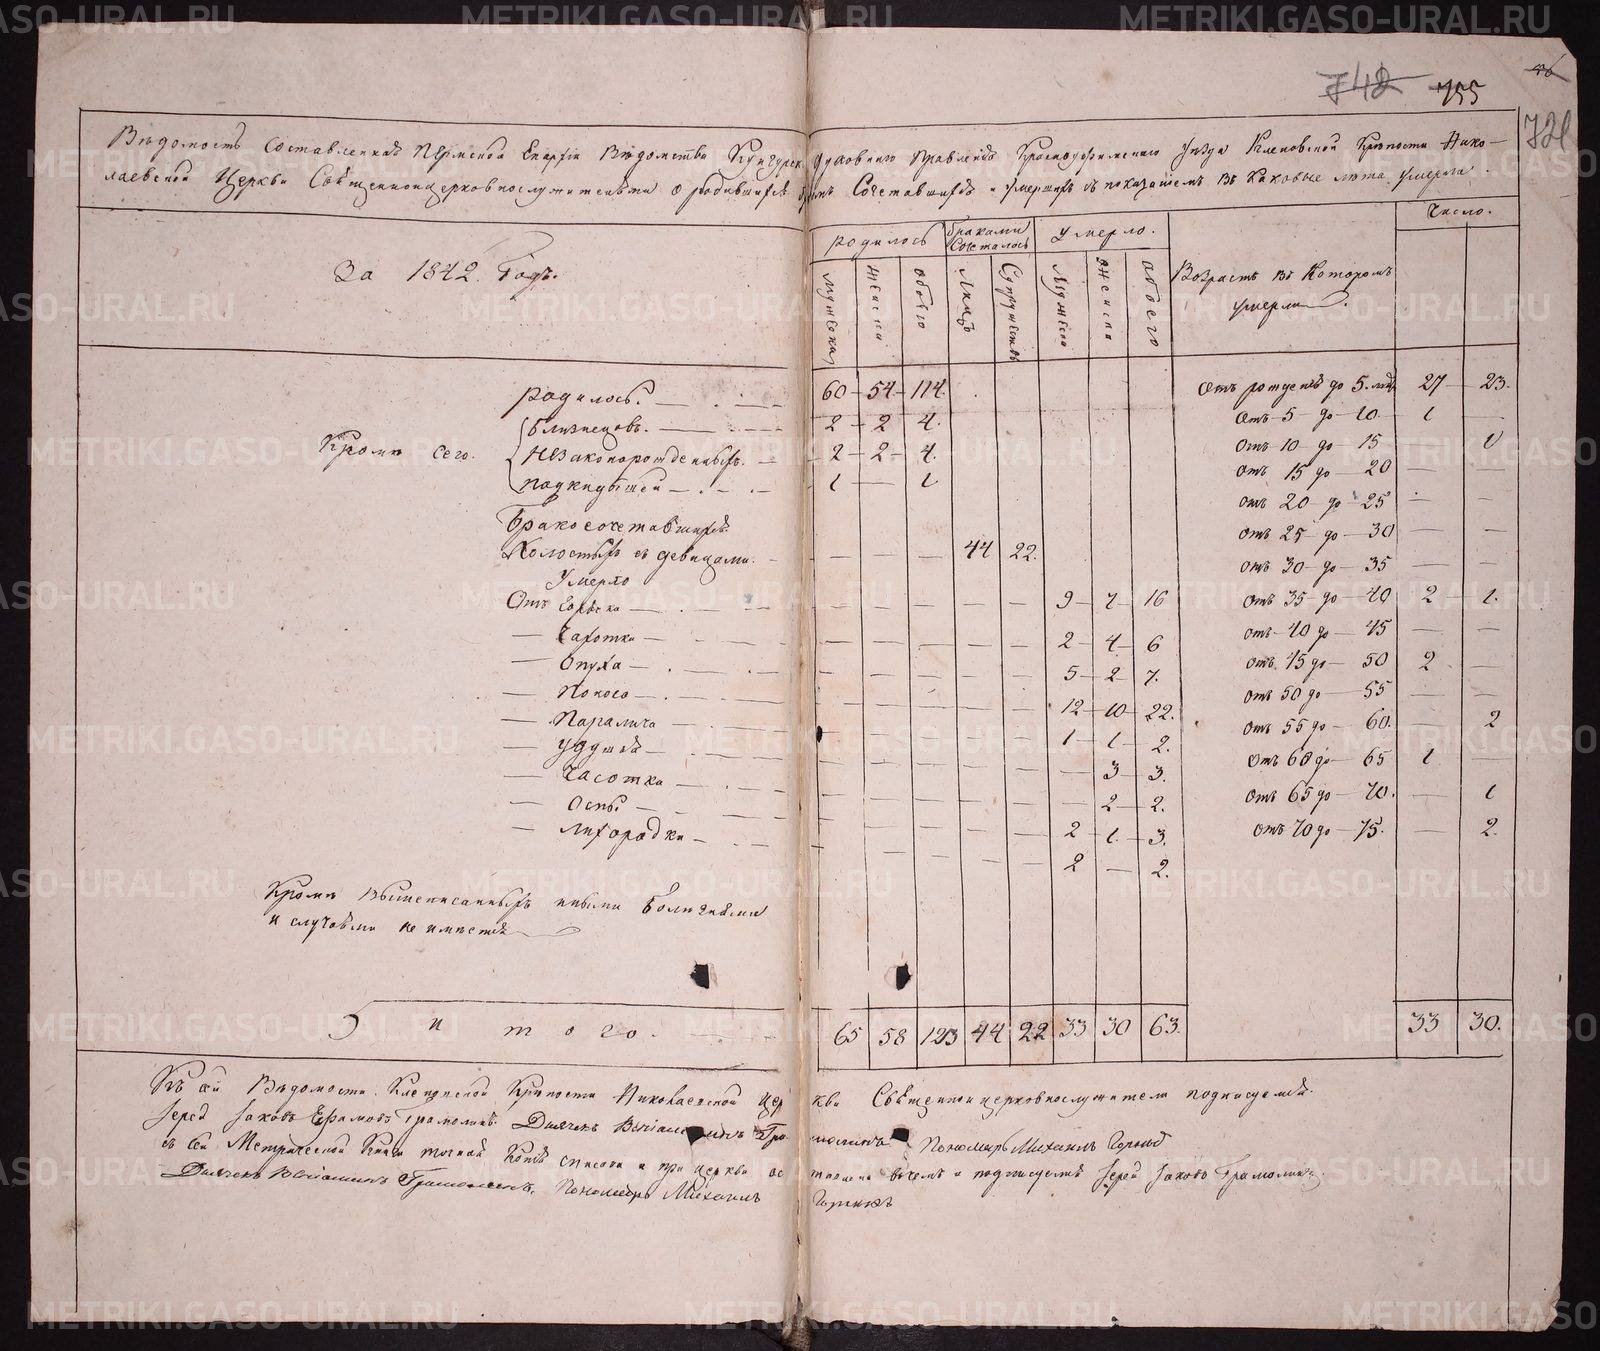 742 755
Вѣдомость составленная Пермской Епархіи Вѣдомства Кунгурск: Духовнаго Правленія Красноуфимскаго уѣзда Кленовской Крѣпости Нико-
лаевской Церкви Священноцерковнослужителями о родившихся бракомъ сочетавшихся и умершихъ съ показаніемъ въ каковые лѣта умерли.
За 1842 Годъ.
родилось браками сочеталось умерло. Возрастъ въ которомъ умерли. Число.
мужеска женска обоего лицъ супружествъ мужеска женска обоего
родилось. 60 54 114. Отъ рожденія до 5. лѣтъ 27 23.
Кромѣ сего. близнецовъ. 2 2 4. Отъ 5 до 10 1 —
незаконорожденныхъ. 2 2 4. Отъ 10 до 15 — 1
подкидышей 1 — 1 Отъ 15 до 20 — —
Бракосочетавшихся Отъ 20 до 25 — —
Холостыхъ съ девицами. — — — 44 22. Отъ 25 до 30 — —
Умерло Отъ 30 до 35 — —
Отъ 9 7 16 Отъ 35 до 40 2 1.
— Чахотки 2 4 6 Отъ 40 до 45 — —
— Опуха 5 2 7. Отъ 45 до 50 2 —
— Поноса 12 10 22. Отъ 50 до 55 — —
— Паралича 1 1 2. Отъ 55 до 60. — 2
— Удушья — 3 3. Отъ 60 до 65 1 —
— Часотки — 2 2. Отъ 65 до 70. — 1
— Оспы 2 1. 3. Отъ 70 до 75. — 2.
— Лихорадки 2 — 2.
Кромѣ вышеписанныхъ иными болезнями
и случаями не имѣется
Итого. 65 58 123 44 22 33 30 63. 33 30.
Къ сей Вѣдомости Кленовской Крѣпости Николаевской Церкви Священноицерковнослужители подписуемся.
Іерей Іаковъ Грамолинъ Дьячекъ Грамолинъ Пономарь Михаилъ
съ сей Метрической Книги точной копіи списока и при церкви оставлена въ чемъ и подписуемся Іерей Іаковъ Грамолинъ
Дьячекъ Грамолинъ, Пономарь Михаилъ
METRIKI.GASO-URAL.RU